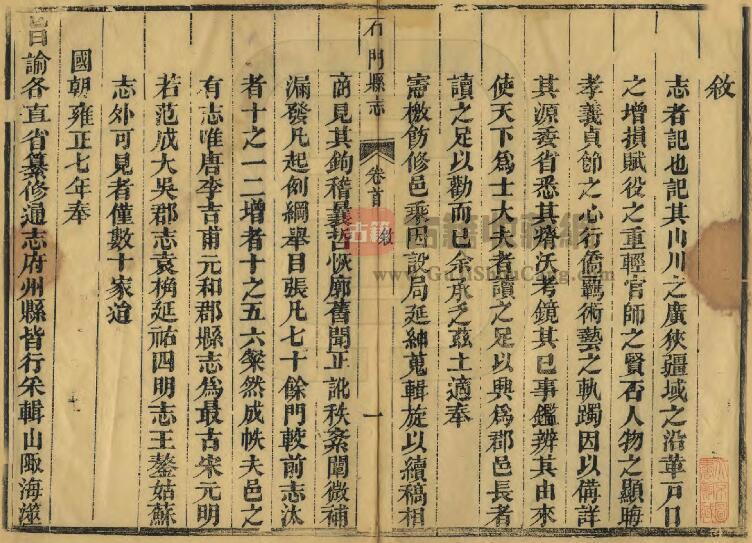 敘
志者記也記其山川之廣狹疆域之沿革戸口
之增損賦役之重輕官師之賢否人物之顯晦
孝義貞節之心行僑羈術藝之軌躅因以備詳
其源委省悉其瘠沃考鏡其已事鑑辨其由來
使天下爲士大夫者讀之足以興爲郡邑長者
讀之足以勸而已余承乏兹土適奉
憲檄飭修邑乘因設局延紳蒐輯旋以續稿相
石門縣志
卷首
敘
一
商見其鉤稽曩哲恢廓舊聞正訛秩紊闡微補
漏發凡起例綱舉目張凡七十餘門較前志汰
者十之一二增者十之五六粲然成帙夫邑之
有志唯唐李吉甫元和郡縣志爲最古宋元明
若范成大吳郡志袁桷延祐四明志王鏊姑蘇
志外可見者僅數十家迨
國朝雍正七年奉
旨諭各直省纂修通志府州縣皆行采輯山陬海澨
古籍
www.GuJiShuCang.com